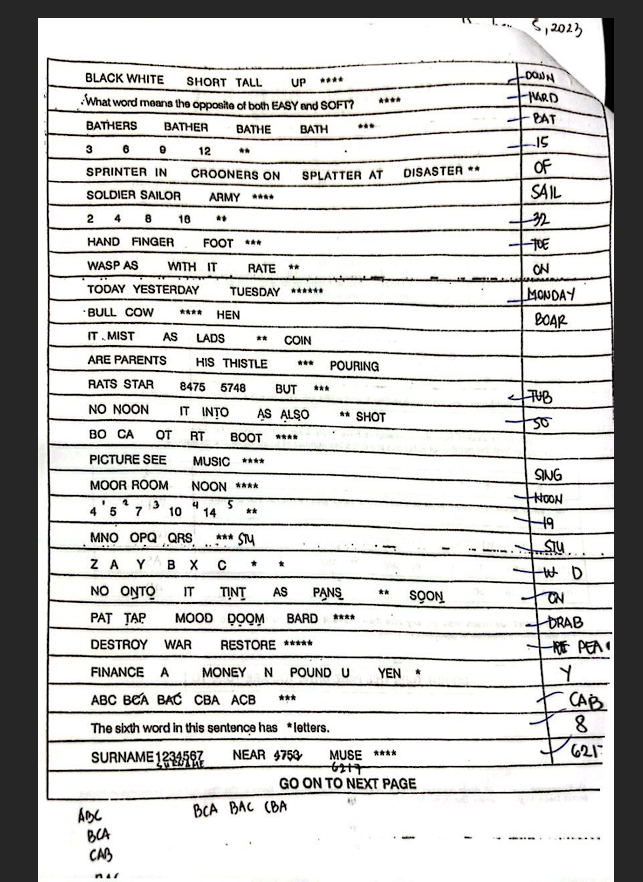 5, 2023
BLACK WHITE SHORT TALL UP **** DOWN
What word means the opposite of both EASY and SOFT? **** HARD
BATHERS BATHER BATHE BATH *** BAT
3 6 9 12 ** 15
SPRINTER IN CROONERS ON SPLATTER AT DISASTER ** OF
SOLDIER SAILOR ARMY **** SAIL
2 4 8 16 ** 32
HAND FINGER FOOT *** TOE
WASP AS WITH IT RATE ** ON
TODAY YESTERDAY TUESDAY ****** MONDAY
BULL COW **** HEN BOAR
IT MIST AS LADS ** COIN
ARE PARENTS HIS THISTLE *** POURING
RATS STAR 8475 5748 BUT *** TUB
NO NOON IT INTO AS ALSO ** SHOT SO
BO CA OT RT BOOT ****
PICTURE SEE MUSIC **** SING
MOOR ROOM NOON **** NOON
4 1 5 2 7 3 10 4 14 5 ** 19
MNO OPQ QRS *** STU STU
Z A Y B X C * * W D
NO ONTO IT TINT AS PANS ** SOON ON
PAT TAP MOOD DOOM BARD **** DRAB
DESTROY WAR RESTORE *****
FINANCE A MONEY N POUND U YEN * Y
ABC BCA BAC CBA ACB *** CAB
The sixth word in this sentence has * letters. 8
SURNAME 1234567 NEAR 4753 MUSE **** 621
SURNAME 6217
GO ON TO NEXT PAGE
ABC BCA BAC CBA
BCA
CAB